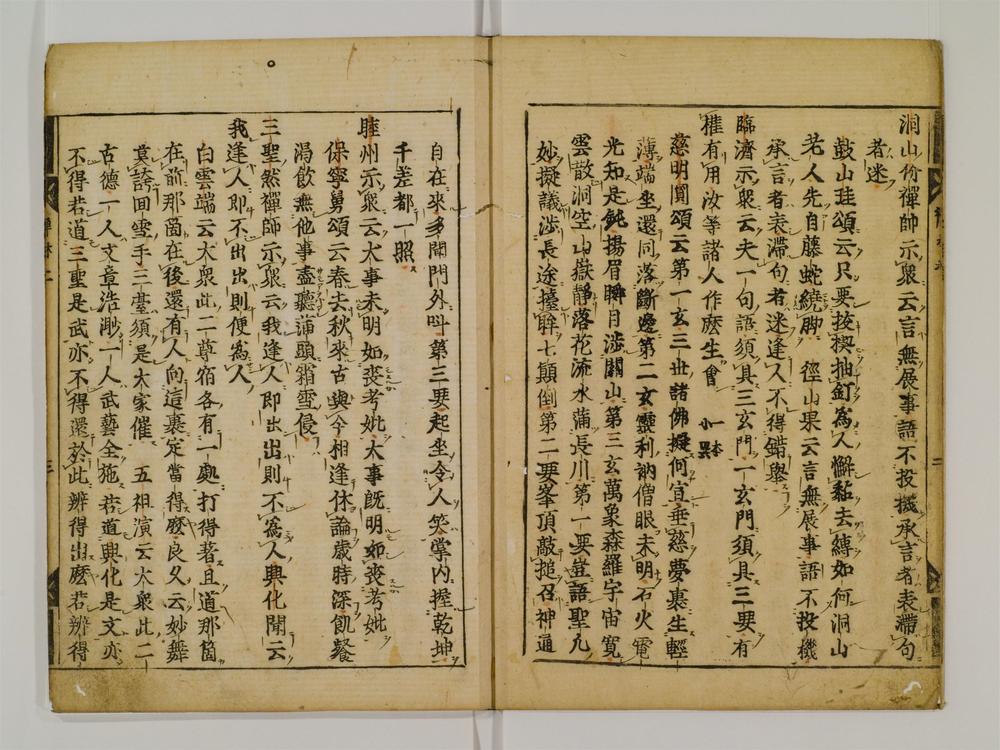 洞山份禪師示衆云言無展事語不投機承言者喪滯句
者迷
鼓山珪頌云只要拔楔抽釘爲人懈黏去縛如何洞山
老人先自藤蛇繞脚 徑山果云言無展事語不投機
承言者喪滯句者迷逢人不得錯舉
臨濟示衆云夫一句語須具三玄門一玄門須具三要有
權有用汝等諸人作麼生會
慈明圓頌云第一玄三世諸佛擬何宣垂慈夢裏生輕
薄端坐還同落斷邊第二玄靈利衲僧眼未明石火電
光知是鈍揚眉瞬目涉關山第三玄萬象森羅宇宙寬
雲散洞空山嶽靜落花流水滿長川第一要豈語聖凡
妙擬議涉長途擡眸七顛倒第二要峯頂敲搥召神通
自在來多聞門外叫第三要起坐令人笑掌內握乾坤
千差都一照
睦州示衆云大事未明如喪考妣大事既明如喪考妣
保寧勇頌云春去秋來古與今相逢休論歲時深飢餐
渴飲無他事盡聽蒲頭霜雪侵
三聖然禪師示衆云我逢人即出出則不爲人興化聞云
我逢人即不出出則便爲人
白雲端云大衆此二尊宿各有一處打得著且道那箇
在前那箇在後還有人向這裏定當得麼良久云妙舞
莫誇回雪手三臺須是大家催 五祖演云大衆此二
古德一人文章浩渺一人武藝全施若道興化是文亦
不得若道三聖是武亦不得還於此辨得出麼若辨得